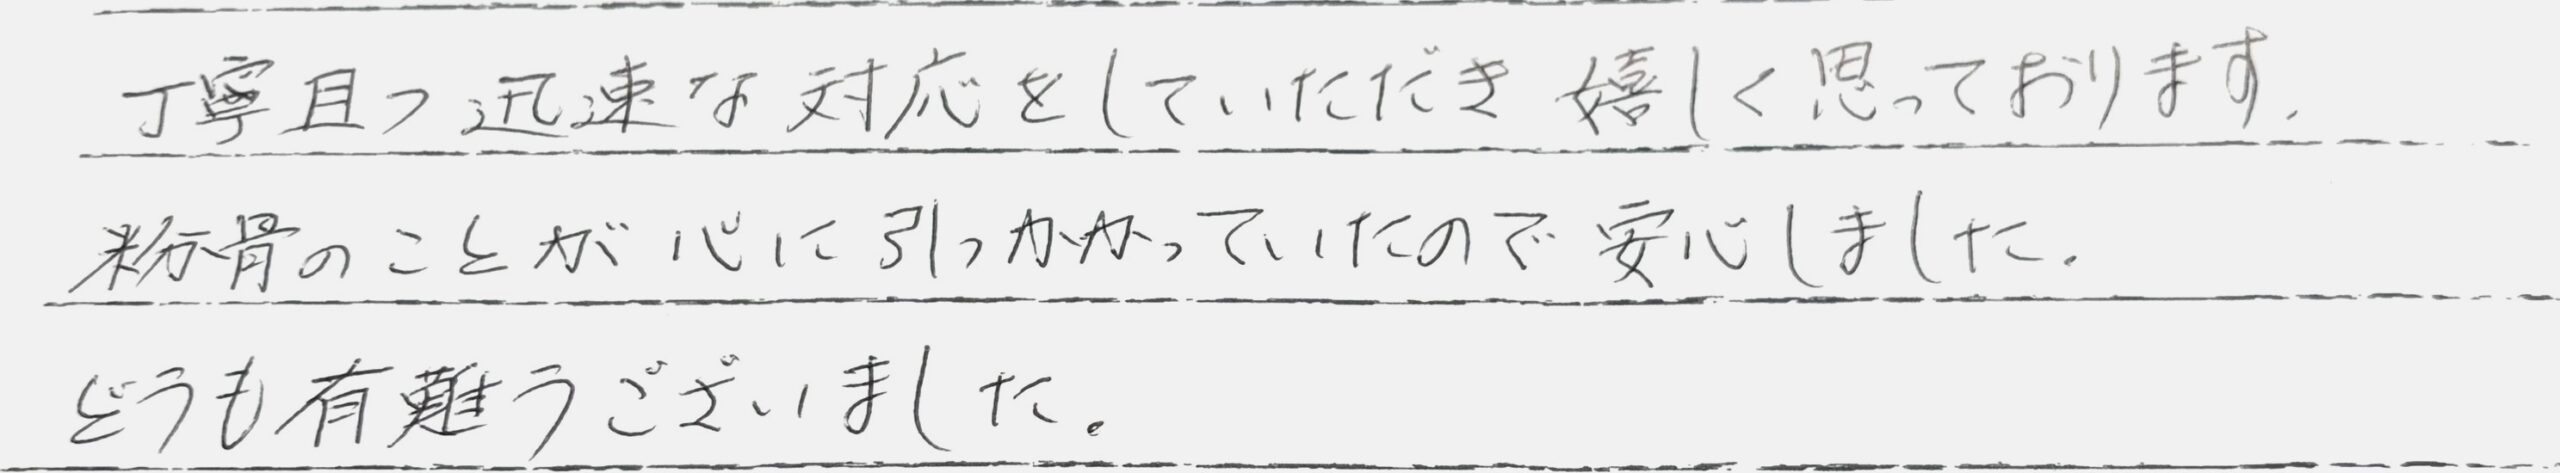 丁寧且つ迅速な対応をしていただき嬉しく思っております。
粉骨のことが心に引っかかっていたので安心しました。
どうも有難うございました。